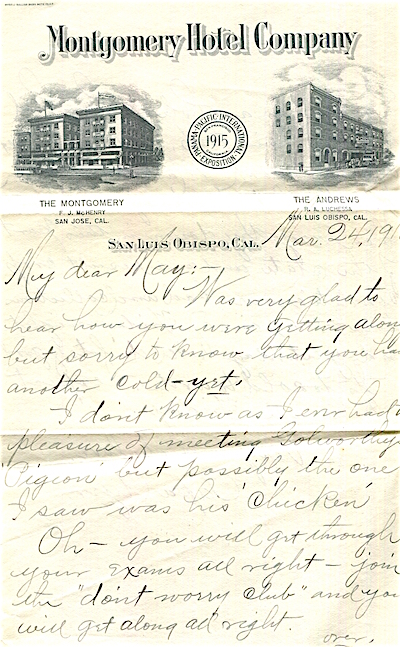 Montgomery Hotel Company
PANAMA PACIFIC INTERNATIONAL
1915
EXPOSITION
THE MONTGOMERY
F. J. McHENRY
SAN JOSE, CAL.
THE ANDREWS
SAN LUIS OBISPO, CAL.
SAN LUIS OBISPO, CAL. Mar. 24, 191
My dear May:-
Was very glad to
hear how you were getting along
but sorry to know that you ha
another cold-yet.
I don't know as I ever had
pleasure of meeting Golworthy
Pigeon' but possibly the one
I saw was his 'chicken'
Oh - you will get through
your exams all right - join
the "don't worry club" and you
will get along all right.
over.